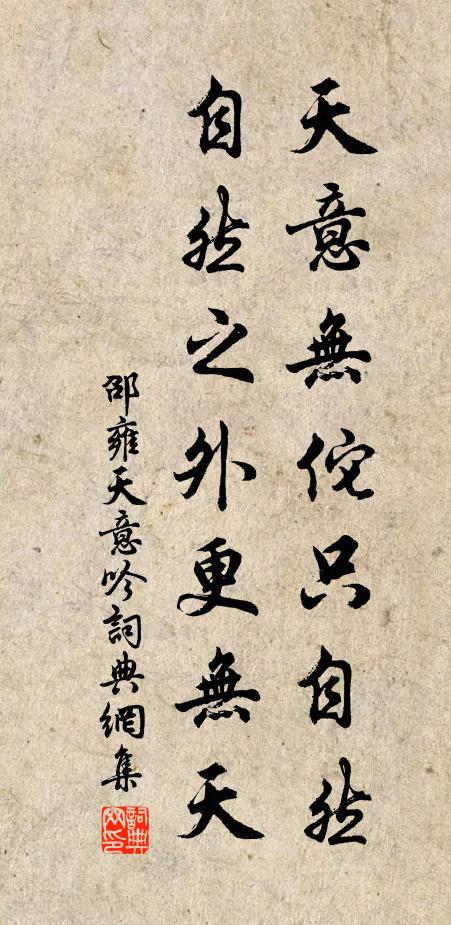 天意無佗只自然
自然之外更無天
邵雍天意吟詞典網集
詞典网印